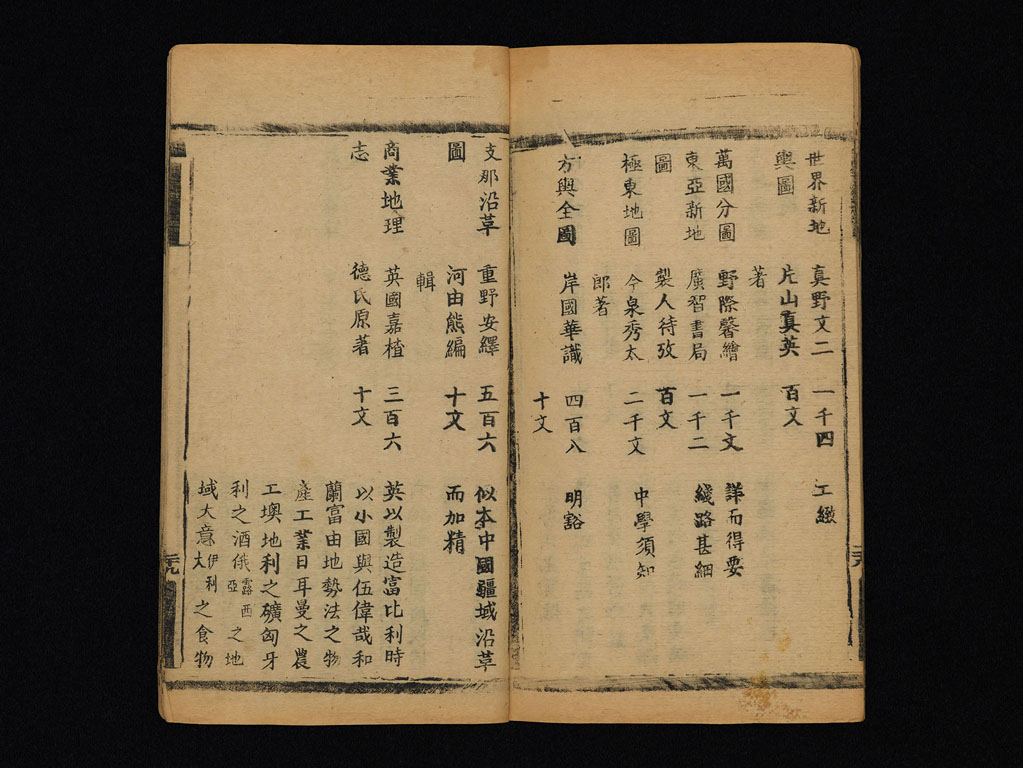 世界新地 真野文二 一千四 工緻
輿圖 片山真英 百文
著
萬國分圖 野際馨繪 一千文 詳而得要
東亞新地 廣智書局 一千二 綫路甚細
圖 製人待攷 百文
極東地圖 今泉秀太 二千文 中學須知
郎著
方輿全圖 岸國華識 四百八 明豁
十文
支那沿草 重野安繹 五百六 似本中國疆域沿草
圖 河由熊編 十文 而加精
輯
商業地理 英國嘉楂 三百六 英以製造富比利時
志 德氏原著 十文 以小國與伍偉哉和
蘭富由地勢法之物
產工業日耳曼之農
工墺地利之礦匈牙
利之酒俄露西亞之地
域大意伊利大之食物